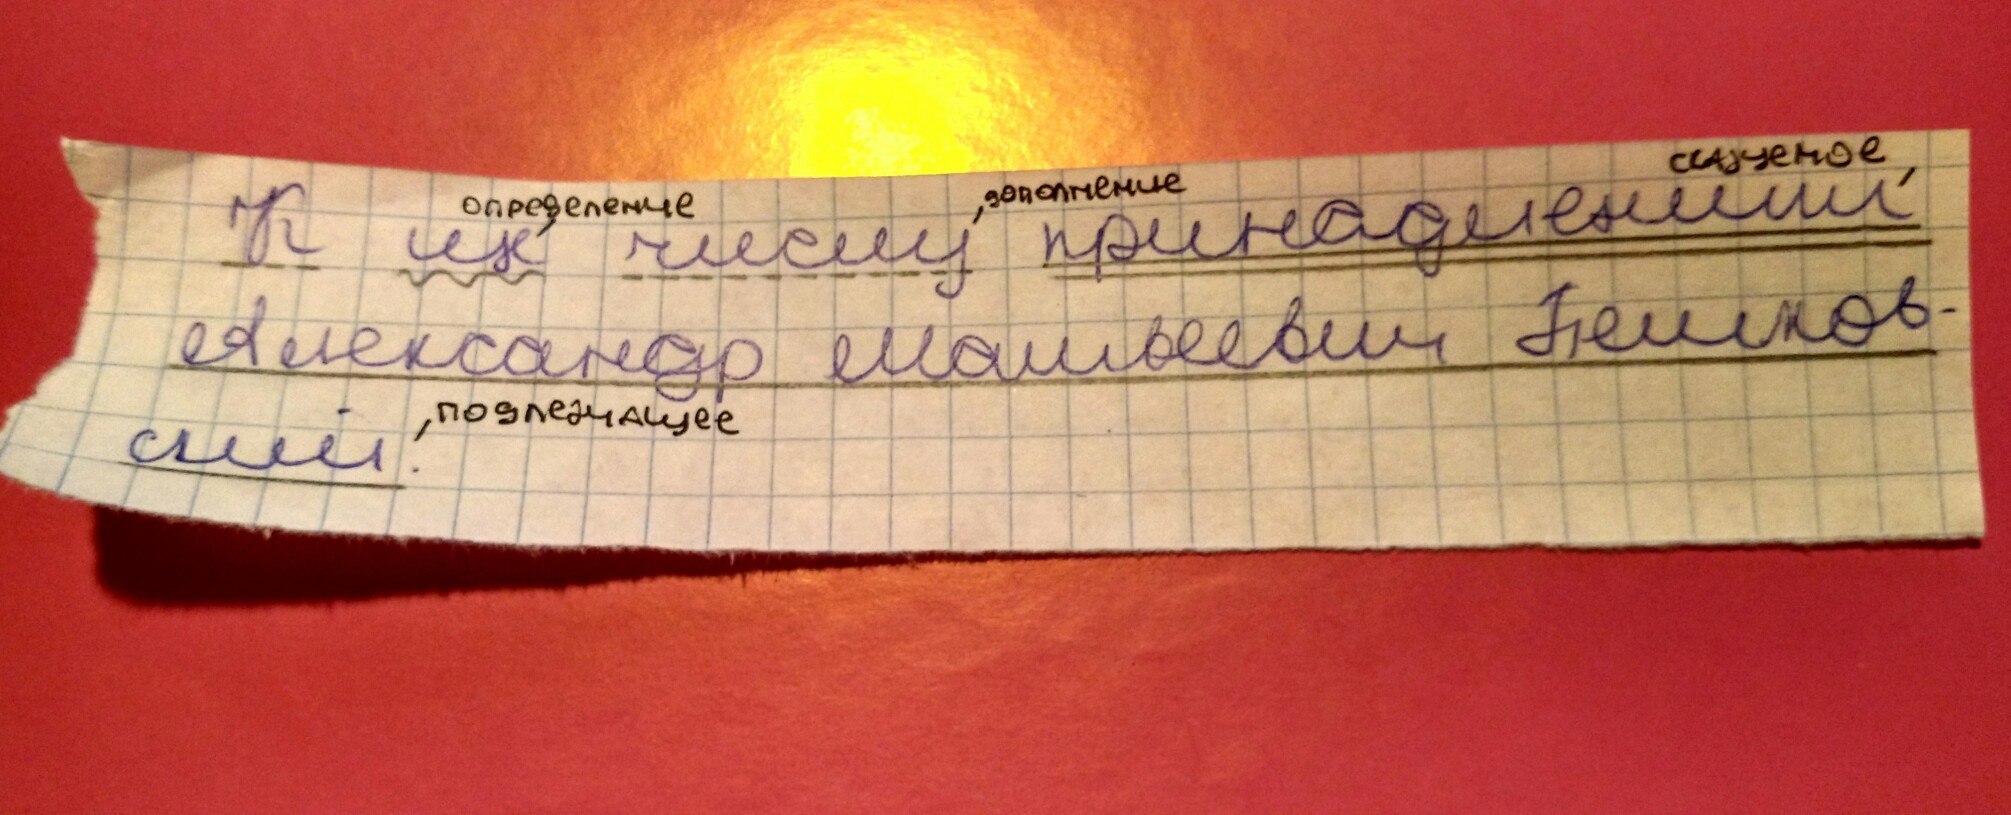 сказуемое
определение ,дополнение
К их числу принадлежит
Александр Матвеевич Пешков-
ский.
,подлежащее